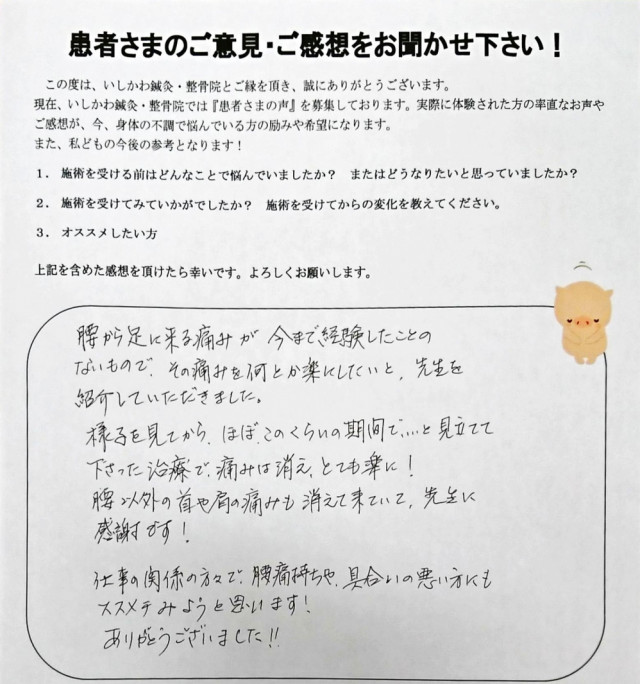 患者さまのご意見・ご感想をお聞かせ下さい！
この度は、いしかわ鍼灸・整骨院とご縁を頂き、誠にありがとうございます。
現在、いしかわ鍼灸・整骨院では『患者さまの声』を募集しております。実際に体験された方の率直なお声や
ご感想が、今、身体の不調で悩んでいる方の励みや希望になります。
また、私どもの今後の参考となります！
1．施術を受ける前はどんなことで悩んでいましたか？　またはどうなりたいと思っていましたか？
2．施術を受けてみていかがでしたか？　施術を受けてからの変化を教えてください。
3．オススメしたい方
上記を含めた感想を頂けたら幸いです。よろしくお願いします。
腰から足に来る痛みが今まで経験したことの
ないもので、その痛みを何とか楽にしたいと、先生を
紹介していただきました。
様子を見てから、ほぼ、このくらいの期間で…と見立てて
下さった治療で、痛みは消え、とても楽に！
腰以外の首や肩の痛みも消えて来ていて、先生に
感謝です！
仕事の関係の方々で、腰痛持ちや、具合いの悪い方にも
ススメテみようと思います！
ありがとうございました!!